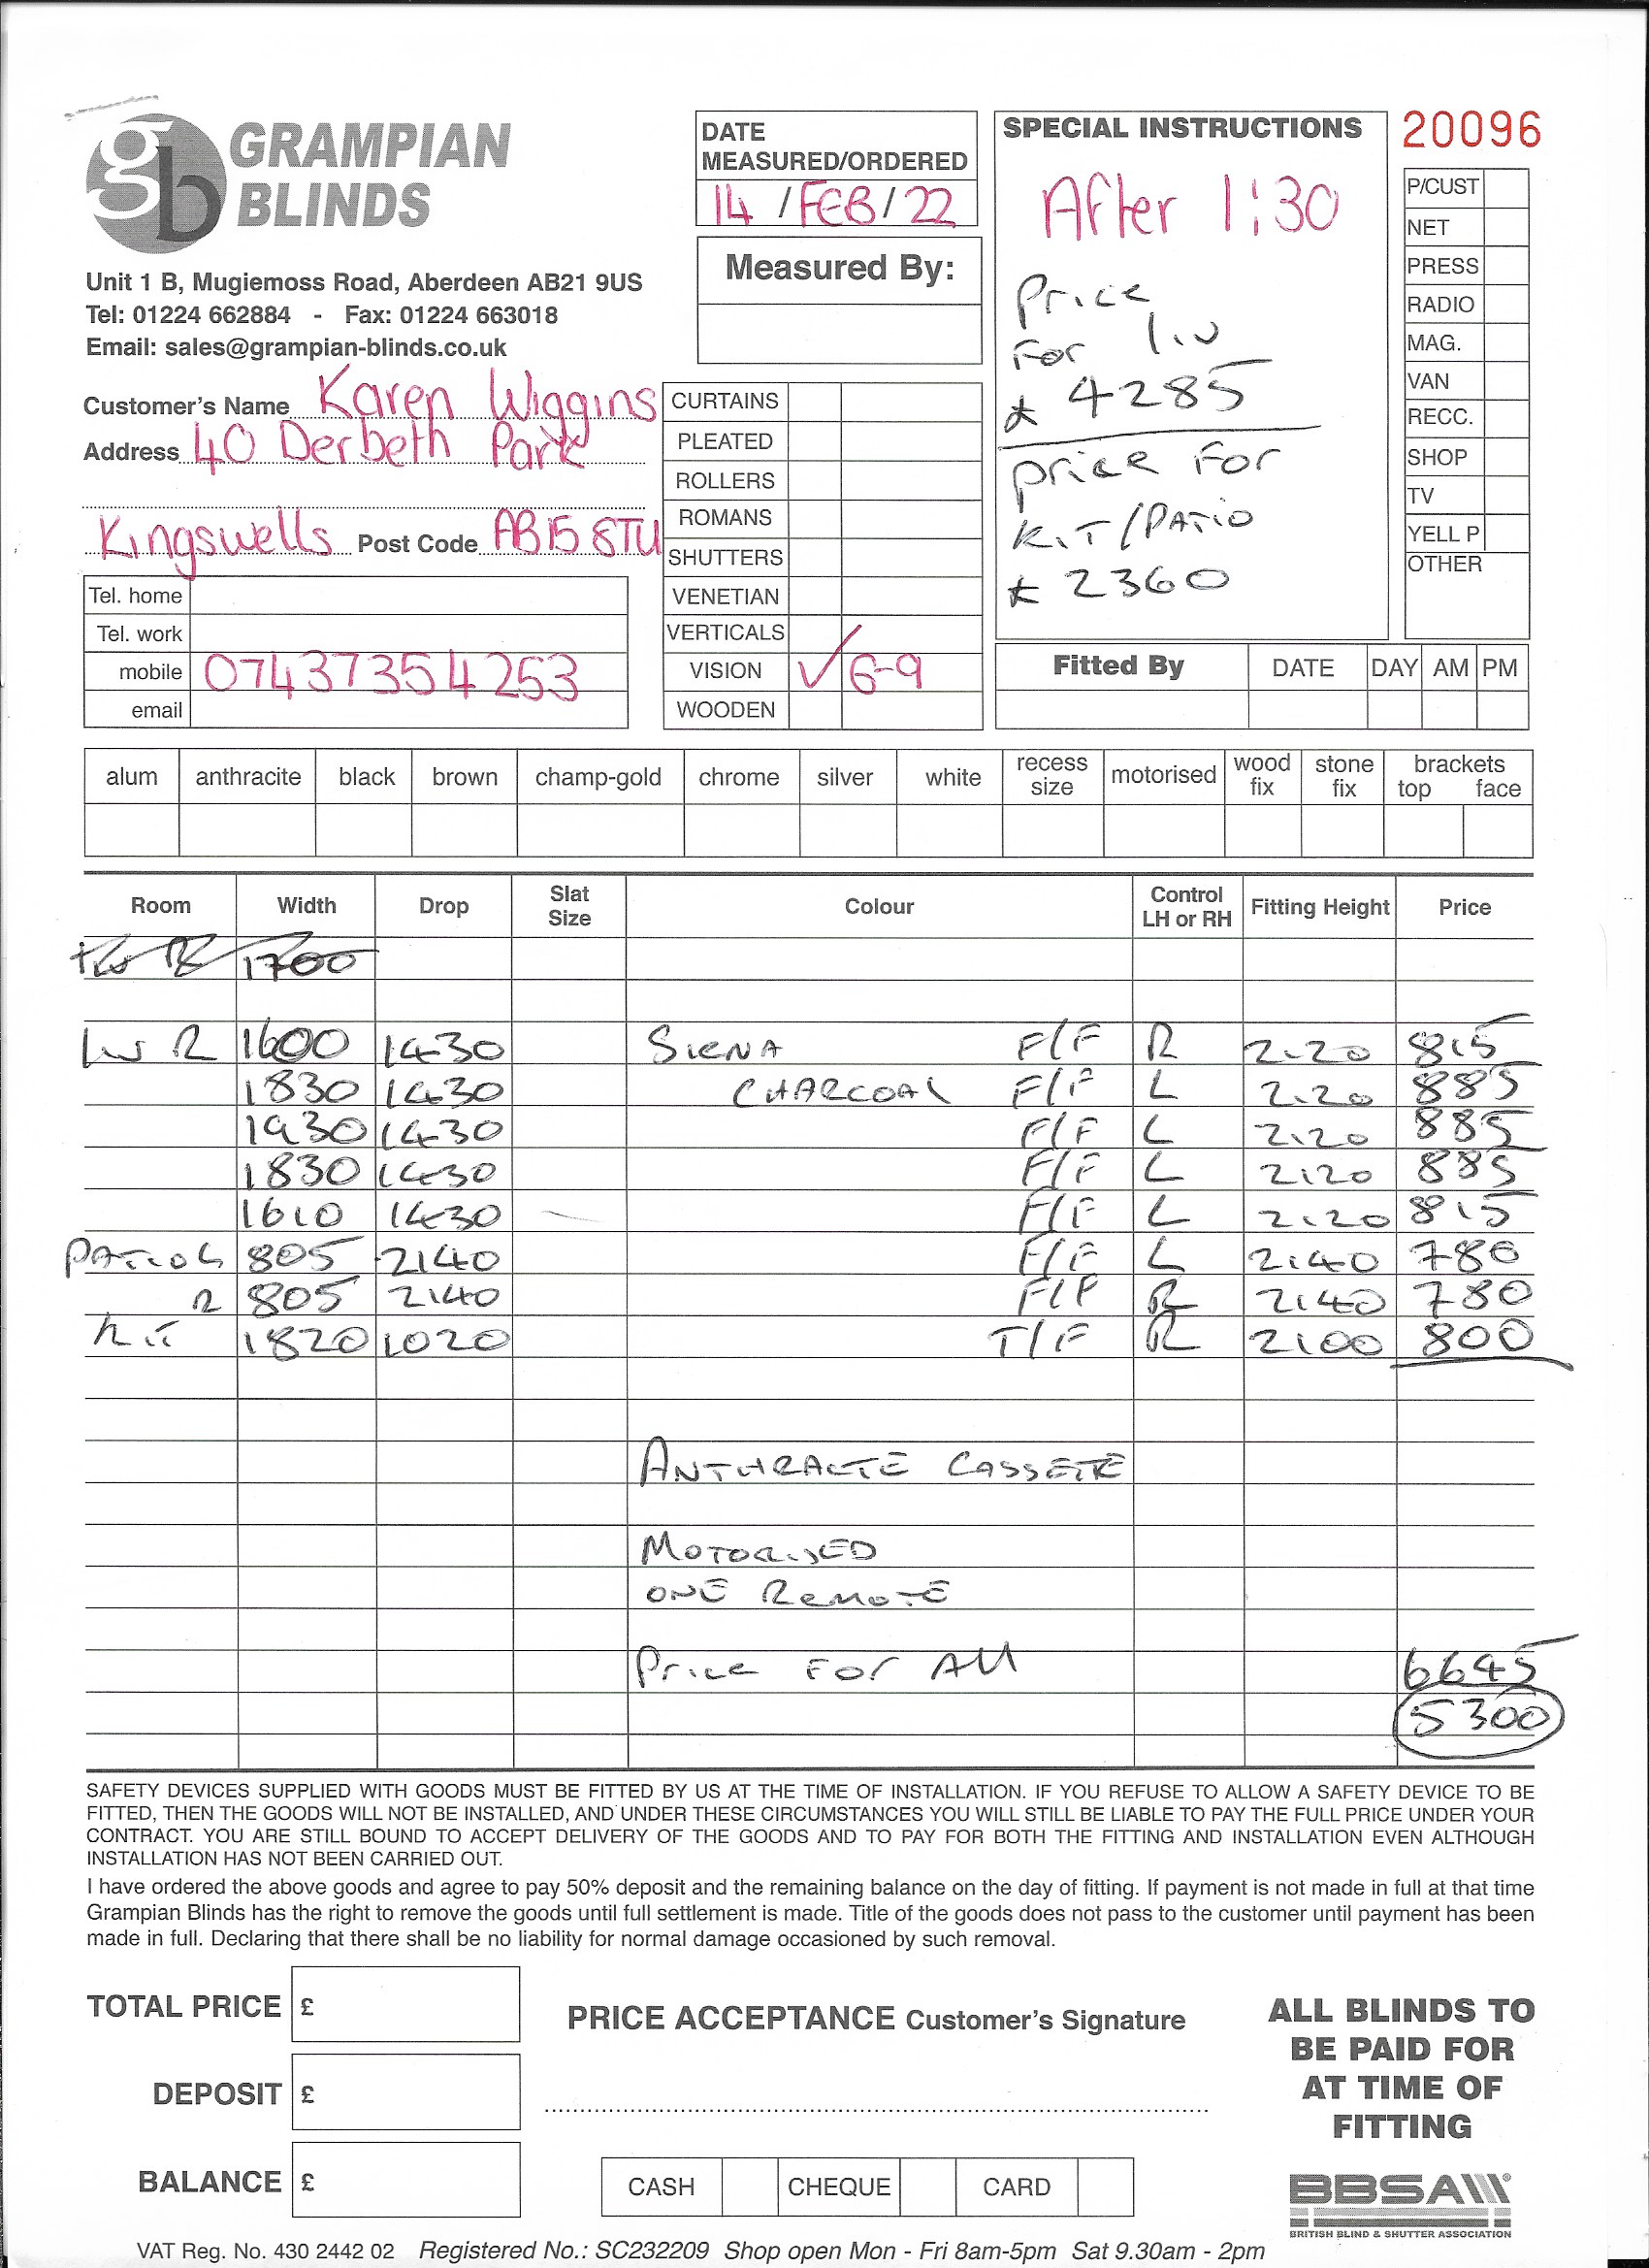 gb GRAMPIAN BLINDS
Unit 1 B, Mugiemoss Road, Aberdeen AB21 9US
Tel: 01224 662884 - Fax: 01224 663018
Email: sales@grampian-blinds.co.uk
Customer's Name Karen Wiggins
Address 40 Derbeth Park
Kingswells Post Code AB15 8TU
Tel. home
Tel. work
mobile 07437354253
email
DATE
MEASURED/ORDERED
14 / FEB / 22
Measured By:
CURTAINS
PLEATED
ROLLERS
ROMANS
SHUTTERS
VENETIAN
VERTICALS
VISION ✓ 6-9
WOODEN
SPECIAL INSTRUCTIONS
After 1:30
Price
For Liv
* 4285
price for
KIT/PATIO
* 2360
20096
P/CUST
NET
PRESS
RADIO
MAG.
VAN
RECC.
SHOP
TV
YELL P
OTHER
Fitted By DATE DAY AM PM
alum anthracite black brown champ-gold chrome silver white recess size motorised wood fix stone fix brackets top face
Room Width Drop Slat Size Colour Control LH or RH Fitting Height Price
1700
Liv R 1600 1430 SIENA F/F R 2.20 815
1830 1430 CHARCOAL F/F L 2.20 885
1930 1430 F/F L 2.20 885
1830 1430 F/F L 2.20 885
1610 1430 F/F L 2.20 815
PATIO L 805 2140 F/F L 2140 780
R 805 2140 F/F R 2140 780
KIT 1820 1020 T/F R 2100 800
ANTHRACITE CASSETTE
MOTORISED
ONE REMOTE
Price For All 6645
5300
SAFETY DEVICES SUPPLIED WITH GOODS MUST BE FITTED BY US AT THE TIME OF INSTALLATION. IF YOU REFUSE TO ALLOW A SAFETY DEVICE TO BE
FITTED, THEN THE GOODS WILL NOT BE INSTALLED, AND UNDER THESE CIRCUMSTANCES YOU WILL STILL BE LIABLE TO PAY THE FULL PRICE UNDER YOUR
CONTRACT. YOU ARE STILL BOUND TO ACCEPT DELIVERY OF THE GOODS AND TO PAY FOR BOTH THE FITTING AND INSTALLATION EVEN ALTHOUGH
INSTALLATION HAS NOT BEEN CARRIED OUT.
I have ordered the above goods and agree to pay 50% deposit and the remaining balance on the day of fitting. If payment is not made in full at that time
Grampian Blinds has the right to remove the goods until full settlement is made. Title of the goods does not pass to the customer until payment has been
made in full. Declaring that there shall be no liability for normal damage occasioned by such removal.
TOTAL PRICE £
DEPOSIT £
BALANCE £
PRICE ACCEPTANCE Customer's Signature
CASH CHEQUE CARD
ALL BLINDS TO
BE PAID FOR
AT TIME OF
FITTING
BBSA
BRITISH BLIND & SHUTTER ASSOCIATION
VAT Reg. No. 430 2442 02 Registered No.: SC232209 Shop open Mon - Fri 8am-5pm Sat 9.30am - 2pm